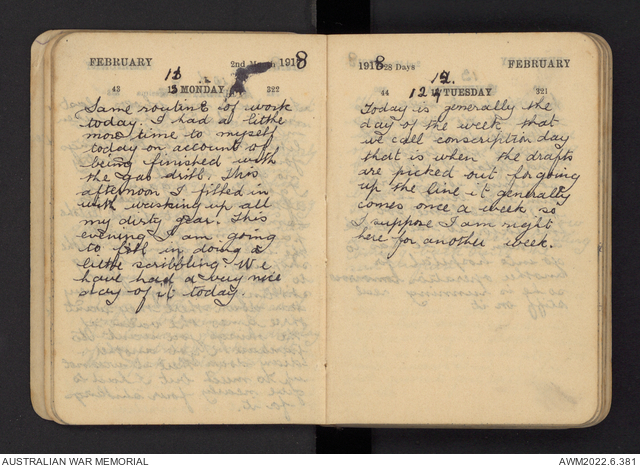 FEBRUARY
2nd Month 1918
11
43 MONDAY 322
Same routine of work
today. I had a little
more time to myself
today on account of
being finished with
the gas drill. This
afternoon I filled in
with washing up all
my dirty gear. This
evening I am going
to fill in doing a
little scribbling. We
have had a very nice
day of it today.
1918 28 Days
FEBRUARY
12.
44 12 TUESDAY 321
Today is generally the
day of the week that
we call conscription day
that is when the drafts
are picked out for going
up the line it generally
comes once a week so
I suppose I am right
here for another week.
AUSTRALIAN WAR MEMORIAL
AWM2022.6.381